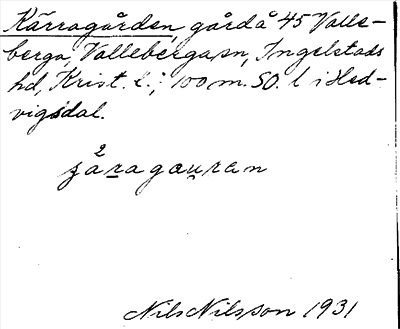 Kärragården, gård å 45 Valle-
berga, Valleberga sn, Ingelstads
hd, Krist. l.; 100 m. SO. l i Hed-
vigsdal.
2
gåragauran
Nils Nilsson 1931